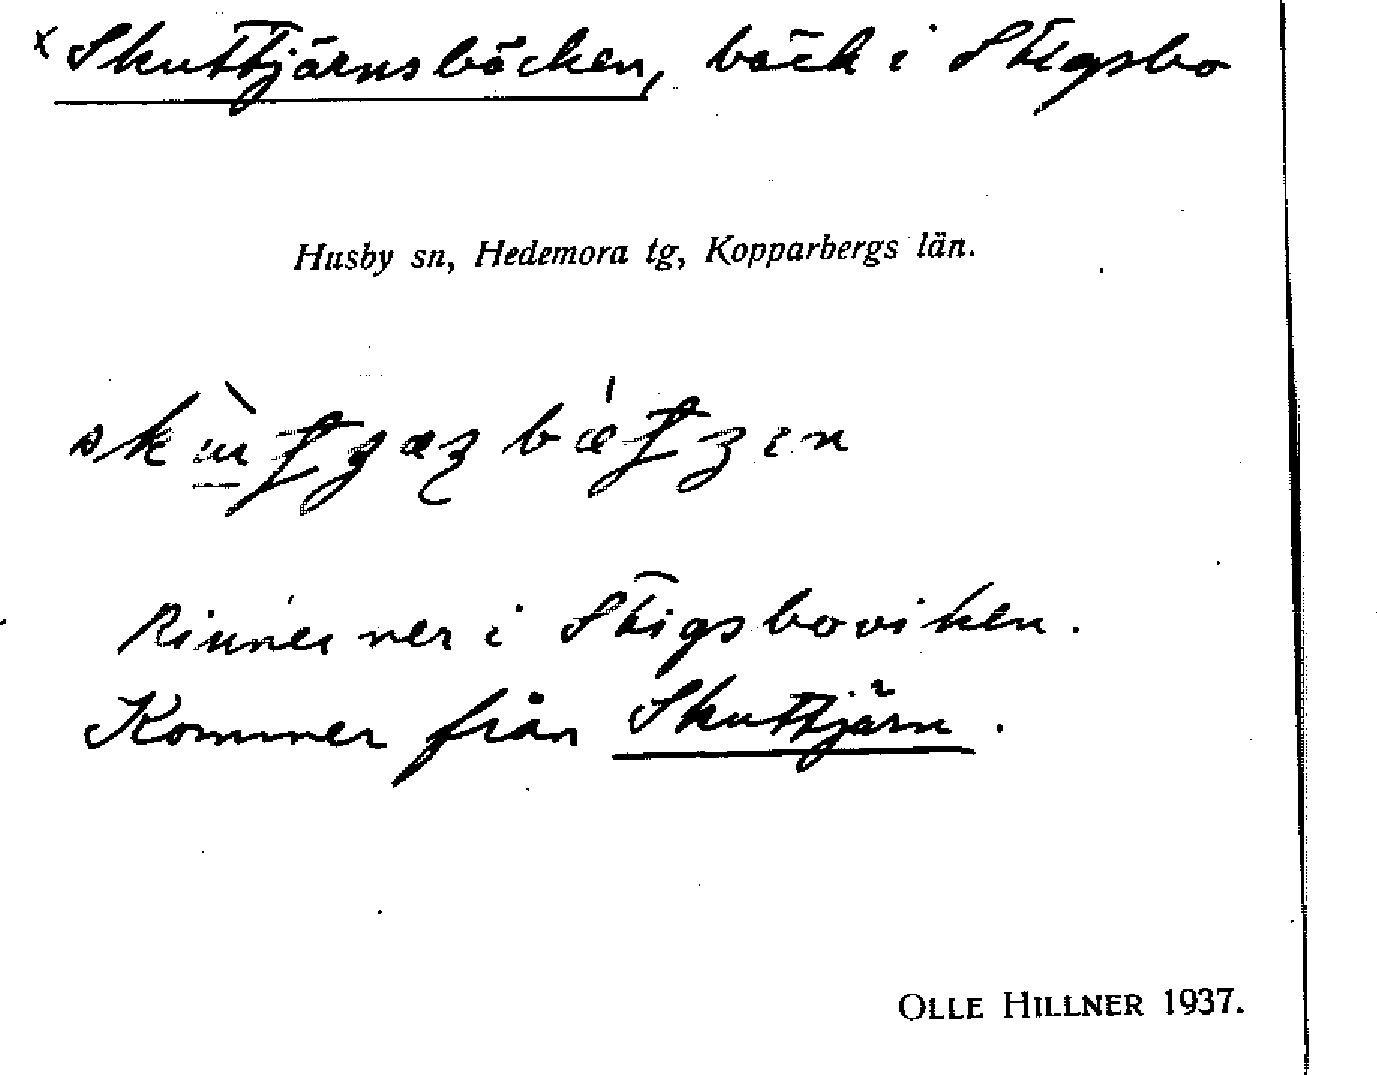 x Skuttjärnsbäcken, bäck i Stigsbo
Husby sn, Hedemora tg, Kopparbergs län.
Rinner ner i Stigsboviken.
Kommer från Skuttjärn.
OLLE HILLNER 1937.